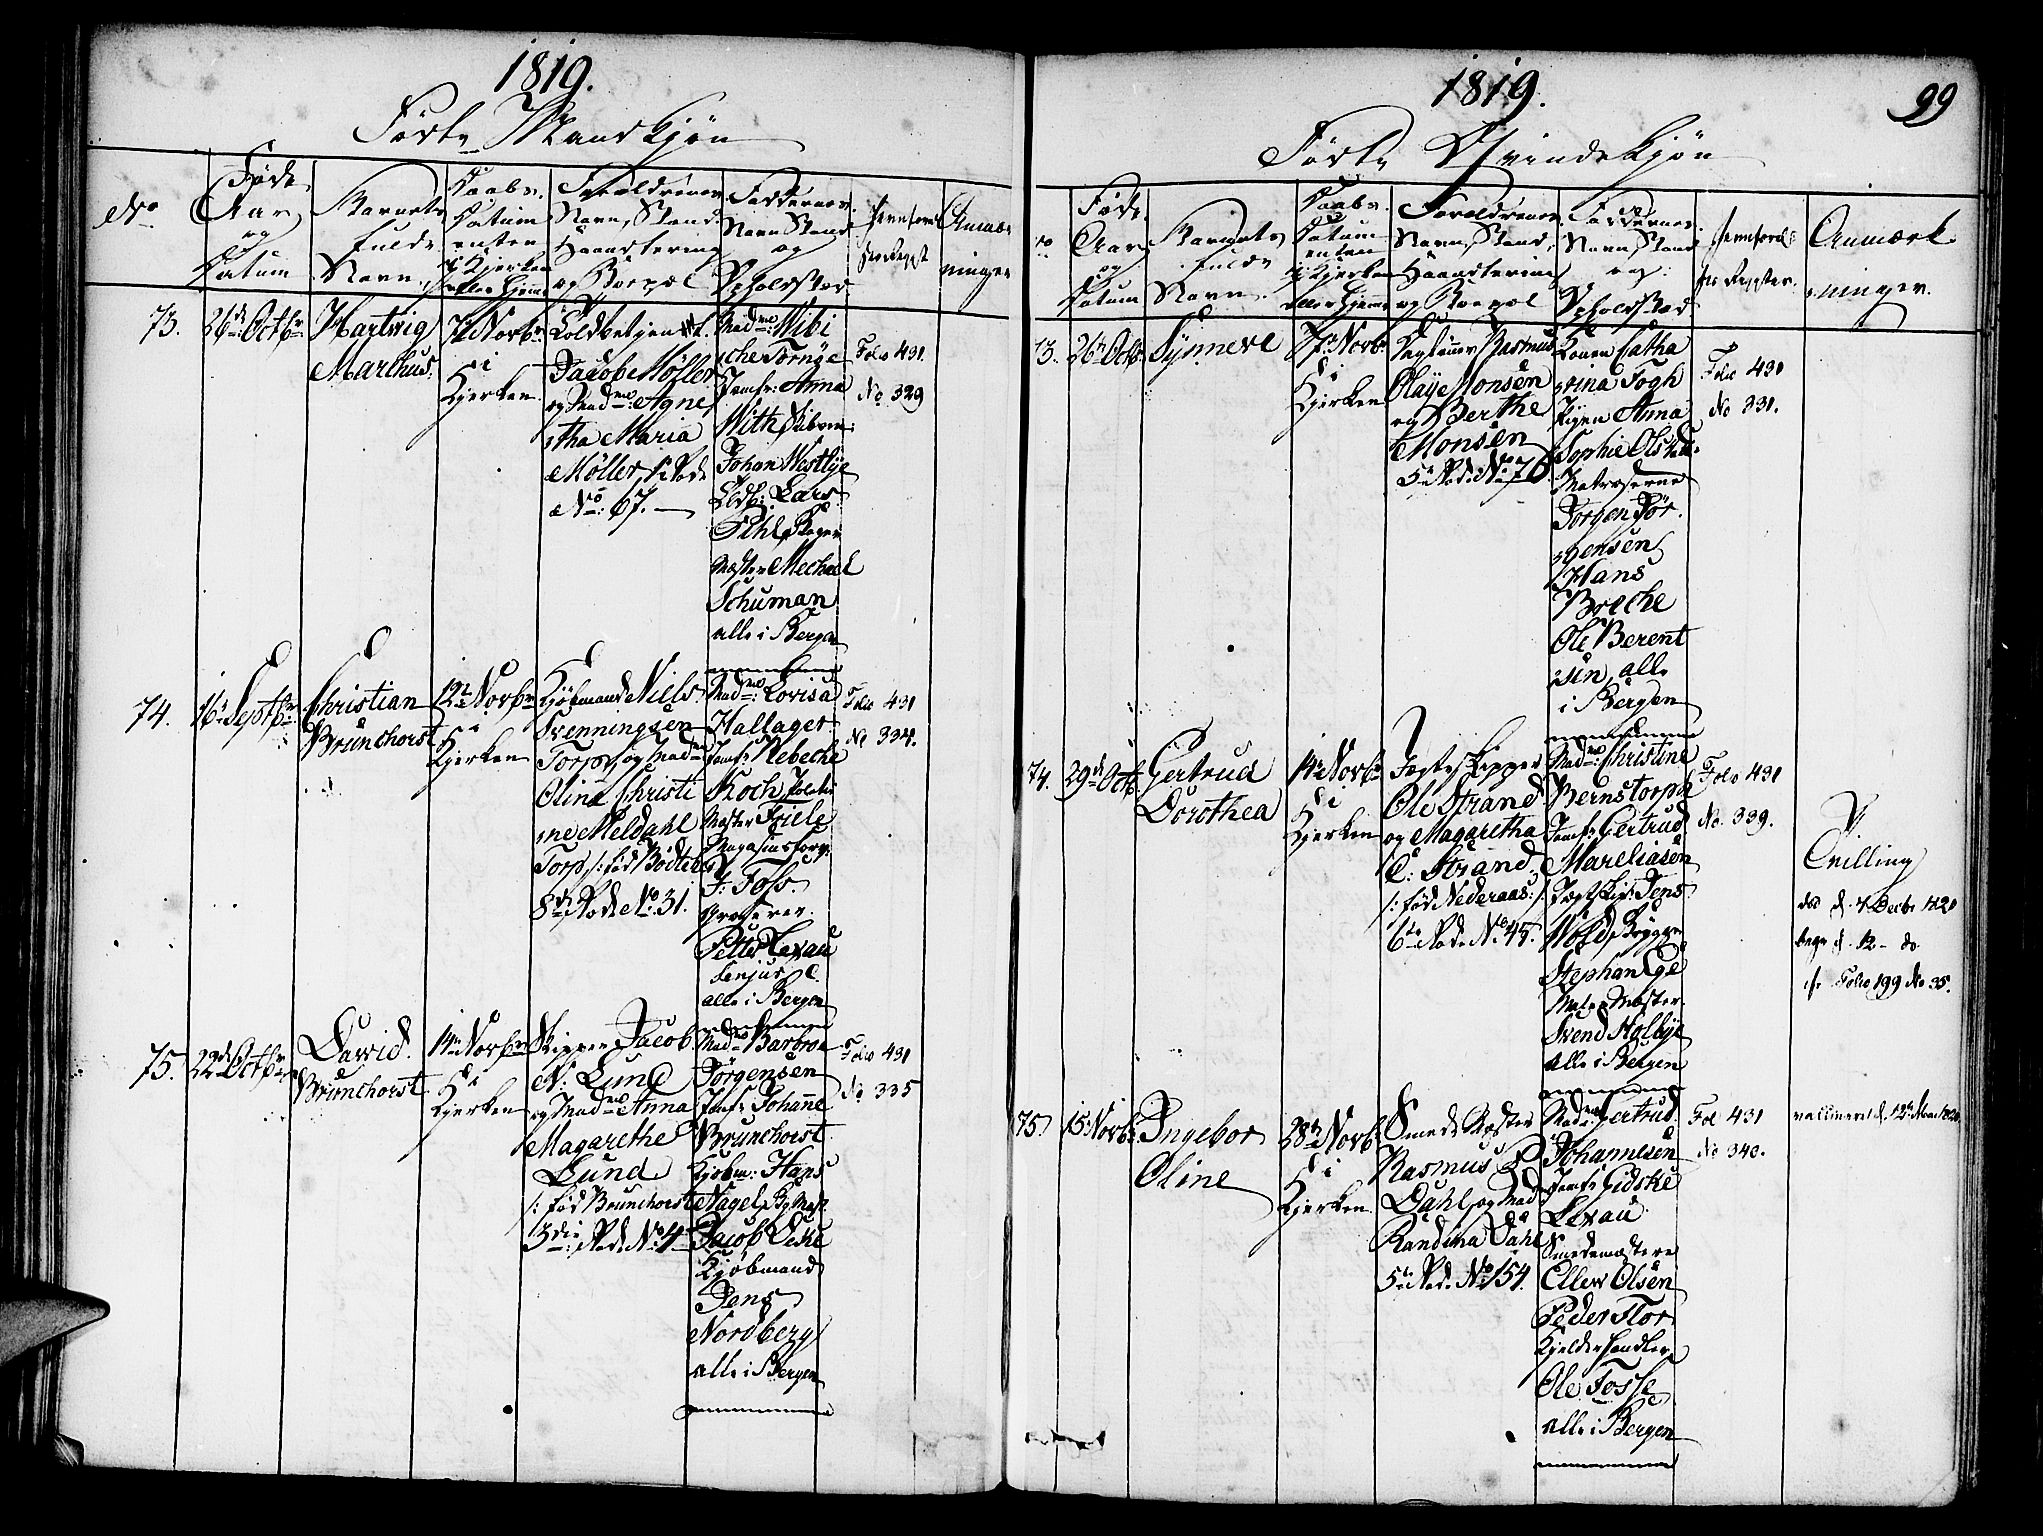 1819.
Födte Mandkjön
No
Föde
Aar
og
Datum
Barnets
fulde
Navn
Daabs
Datum
enten
i Kjerken
eller hjemme
Forældrenes
Navn, Stand
Haandtering
og Boepæl
Faddernes
Navn Stand
og
Opholdsted
Anmærk
ninger
73.
26de Octbr
Hartwig
Marchus.
7de Novbr
i
Kjerken
Toldbetjent
Jacob Möller
og Mad: Agne
tha Maria
Möller
No: 67.
Mad: Wibi
che Tornöe
Jomfr: Anna
With
Johan Westlye
Lars
Pihl
Mester Mechael
Schuman
alle i Bergen
Folio 431.
No 329
74.
16de Septbr
Christian
Brunchorst
12te Novbr
i
Kjerken
Kjöbmand Niels
Svenningsen
Torp, og Mad
Oline Christi
ne Meldahl
Torp /: föd Bödtker
8de Rode No 31.
Mad: Lovisa
Hallager
Jomfr: Rebeche
Koch
Mester Friele
J: Foss.
Petter Lexau
Senjus
alle i Bergen
Folio 431
No 334.
75.
22de Octbr
David
Brunchorst
14de Novbr
i
Kjerken
Skipper Jacob
N: Lund
og Mad: Anna
Magarethe
Lund
/: föd Brunchorst
3die Rode No 4
Mad: Barbroe
Jörgensen
Jomfr: Johanne
Brunchorst
Kjöbm: Hans
Nagel
Jacob
Kjöbmand
Jens
Nordberg
alle i Bergen
Folio 431
No 335
1819.
99
Födte Qvindekjön
Föde
Aar
og
Datum
Barnets
fulde
Navn.
Daabs
Datum
enten
i Kjerken
eller hjemme
Forældrenes
Navn, Stand,
Haandtering
og Boepæl
Faddernes
Navn, Stand
og
Opholdsted
Anmærk
ninger.
73.
26de Octb:
Synneve
7de Novb:
i
Kjerken
Rasmus
Olaye Monsen
og Berthe
Monsen
5te Rode No 76
Konen Catha
rina Fogh
Pigen Anna
Sophie
Matroserne
Jörgen Jör
gensen
Hans
Breche
Ole Berent
sen, alle
i Bergen
Folio 431
No 331.
74.
29de Octb.
Gertrud
Dorothea
14de Novb:
i
Kjerken
Jægteskipper
Ole Strand
og Magaretha
C: Strand
/: föd Nederaas :/
6te Rode No 45.
Mad: Christine
Bernstorph
Jomfr: Gertrud
Mareliasen
Jægtskip: Jens
Wold
Stephan
Maler Mester
Svend Holbye
alle i Bergen
Folio 431
No. 339.
Tvilling
död d. 7 Decbr 1820
begr d. 12 - do
cfr Folio 199 No 35.
75.
15 Novbr
Ingebor
Oline
28de Novb:
i
Kjerken
Smede Mester
Rasmus
Dahl, og Mad
Randina Dahl
5te Rode No 154.
Mad: Gertrud
Johannesen
Jomfr: Gidske
Lexau
Smedemestere
Ellew Olsen
Peder Flor
Kjelderhandler
Ole Fosse
alle i Bergen
Fol 431
No 340.
vaccineret d. 12